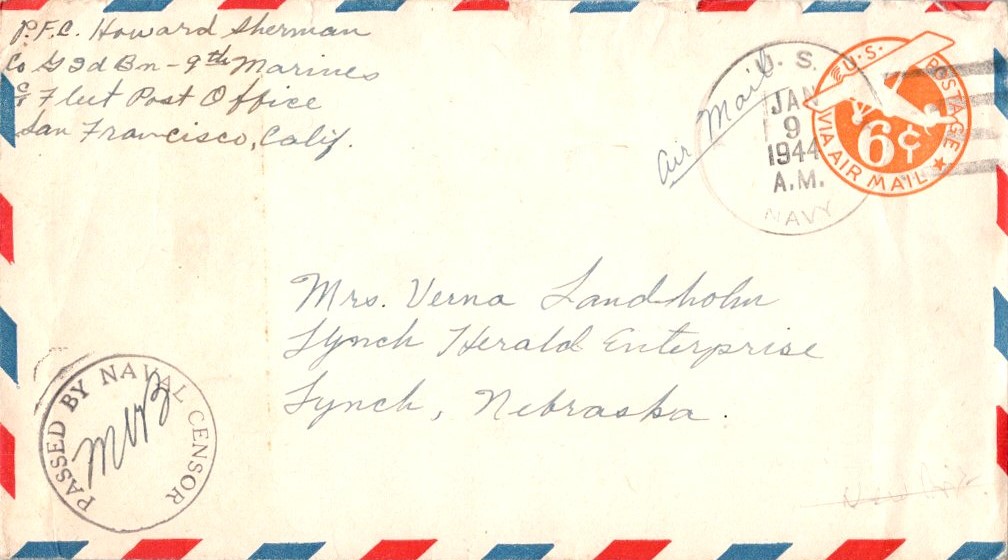 P.F.C. Howard Sherman
Co G 2d Bn - 9th Marines
c/o Fleet Post Office
San Francisco, Calif.
Air Mail
U. S.
JAN
9
1944
A.M.
NAVY
U.S. POSTAGE
6¢
VIA AIR MAIL
Mrs. Verna Landholm
Lynch Herald Enterprise
Lynch, Nebraska.
PASSED BY NAVAL CENSOR
MWB